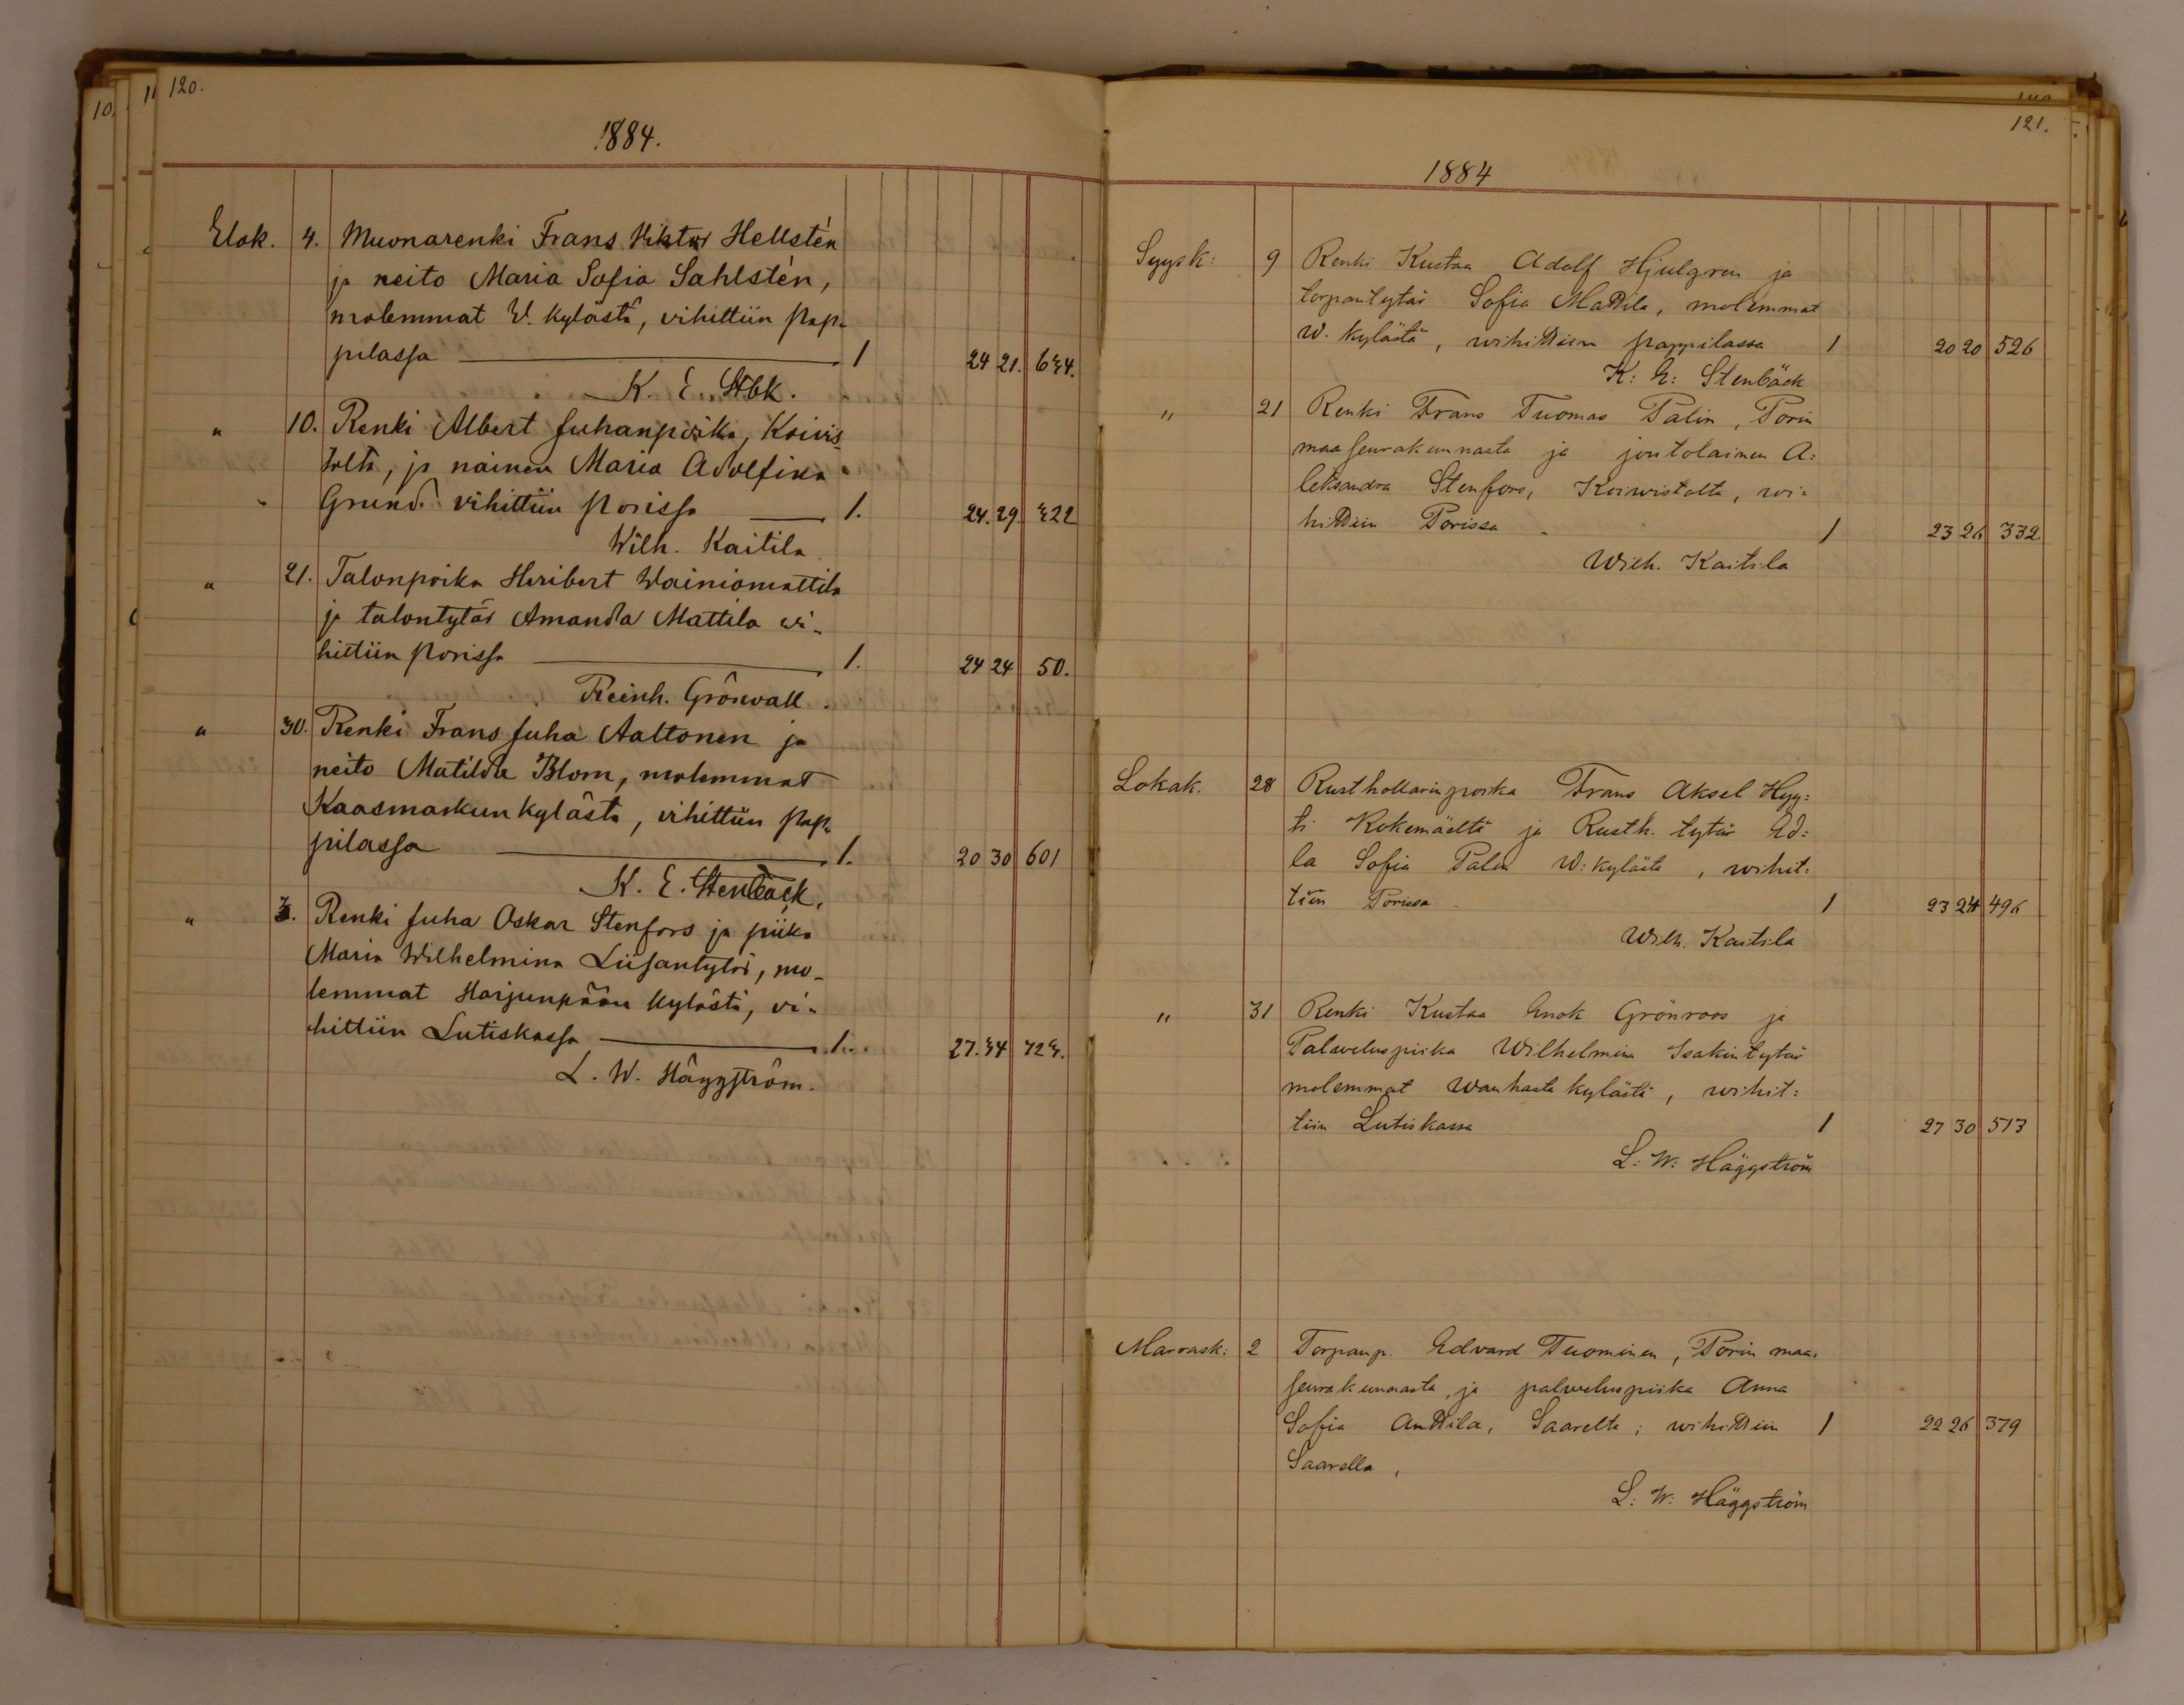 120.
1884.
Elok. 4. Muonarenki Frans Viktor Hellstén
ja neito Maria Sofia Sahlstén,
molemmat V. kylästä, vihittiin pap-
pilassa 1 24 21. 634.
K. E. Stbk.
" 10. Renki Albert Juhanpoika, Koivis
tolta, ja nainen Maria Adolfina
Grund. vihittiin Porissa 1. 24. 29. 322
Wilh. Kaitila
" 21. Talonpoika Heribert Wainiomattila
ja talontytär Amanda Mattila vi-
hittiin Porissa 1. 24 24 50.
Reinh. Grönvall.
" 30. Renki Frans Juha Aaltonen ja
neito Matilda Blom, molemmat
Kaasmarkun kylästä, vihittiin pap-
pilassa 1. 20 30 601
K. E. Stenbäck.
" Renki Juha Oskar Stenfors ja piika
Maria Wilhelmina Liisantytär, mo-
lemmat Harjunpään kylästä, vi-
hittiin Lutiskassa 1. 27. 34 723.
L. W. Häggström.
121.
1884
Syysk: 9 Renki Kustaa Adolf Hjulgren ja
torpantytär Sofia Mattila, molemmat
W. kylästä, wihittiin pappilassa 1 20 20 526
K: E: Stenbäck
" 21 Renki Frans Tuomas Palin, Porin
maaseurakunnasta ja joutolainen A:
leksandra Stenfors, Koiwistolta, wi=
hittiin Porissa 1 23 26 332
Wilh. Kaitila
Lokak. 28 Rusthollarinpoika Frans Aksel Hyy:
ti Kokemäeltä ja Rusth. tytär Ed:
la Sofia Palin W: kylästä, wihit:
tiin Porissa 1 23 24 496
Wilh. Kaitila
" 31 Renki Kustaa Enok Grönroos ja
Palweluspiika Wilhelmina Isakintytär
molemmat Wanhasta kylästä, wihit:
tiin Lutiskassa 1 27 30 513
L: W: Häggström
Marrask: 2 Torpanp. Edvard Tuominen, Porin maa-
seurakunnasta, ja palweluspiika Anna
Sofia Anttila, Saarelta; wihittiin 1 22 26 379
Saarella,
L: W: Häggström